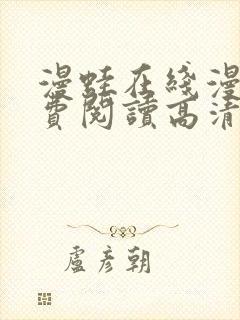 漫蛙在綫漫
費閱讀高清
盧彥朝